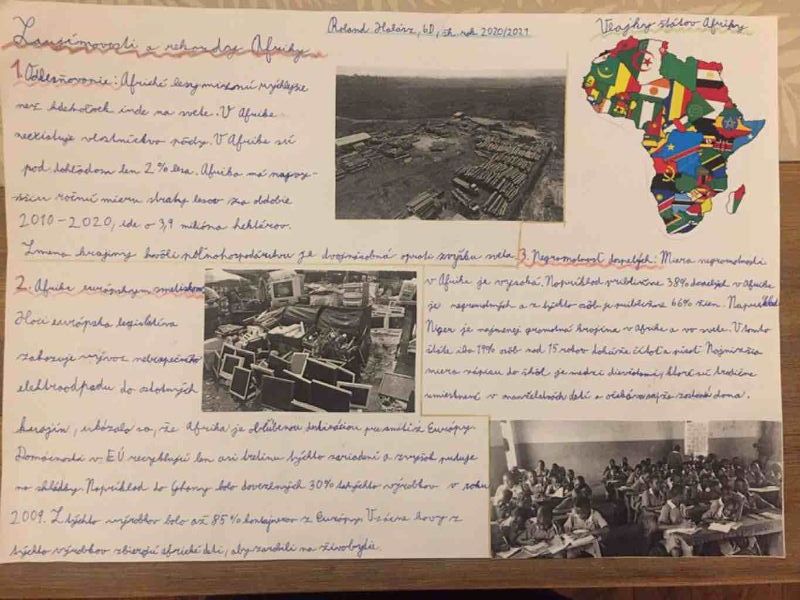 Zaujímavosti a rekordy Afriky
Roland Halász, 6D, šk. rok 2020/2021
Vlajky štátov Afriky
1. Odlesňovanie: Africké lesy miznú rýchlejšie
než kdekoľvek inde na svete. V Afrike
neexistuje vlastníctvo pôdy. V Afrike sú
pod dohľadom len 2% lesa. Afrika má najvyš-
šiu ročnú mieru straty lesov za obdobie
2010-2020, ide o 3,9 milióna hektárov.
Zmena krajiny kvôli poľnohospodárstvu je dvojnásobná oproti zvyšku sveta.
2. Afrika európskym smetiskom:
Hoci európska legislatíva
zakazuje vývoz nebezpečného
elektroodpadu do ostatných
krajín, ukázalo sa, že Afrika je obľúbenou destináciou pre smeti z Európy.
Domácnosti v EÚ recyklujú len asi tretinu týchto zariadení a zvyšok putuje
na skládky. Napríklad do Ghany bolo dovezených 30% takýchto výrobkov v roku
2009. Z týchto výrobkov bolo až 85% kontajnerov z Európy. Vzácne kovy z
týchto výrobkov zbierajú africké deti, aby zarobili na živobytie.
3. Negramotnosť dospelých: Miera negramotnosti
v Afrike je vysoká. Napríklad približne 38% dospelých v Afrike
je negramotných a z týchto osôb je približne 66% žien. Napríklad
Niger je najmenej gramotná krajina v Afrike a vo svete. V tomto
štáte iba 19% osôb nad 15 rokov dokáže čítať a písať. Najnižšia
miera zápisu do škôl je medzi dievčatami, ktoré sú tradične
umiestnené v manželstvách detí a očakáva sa, že zostanú doma.